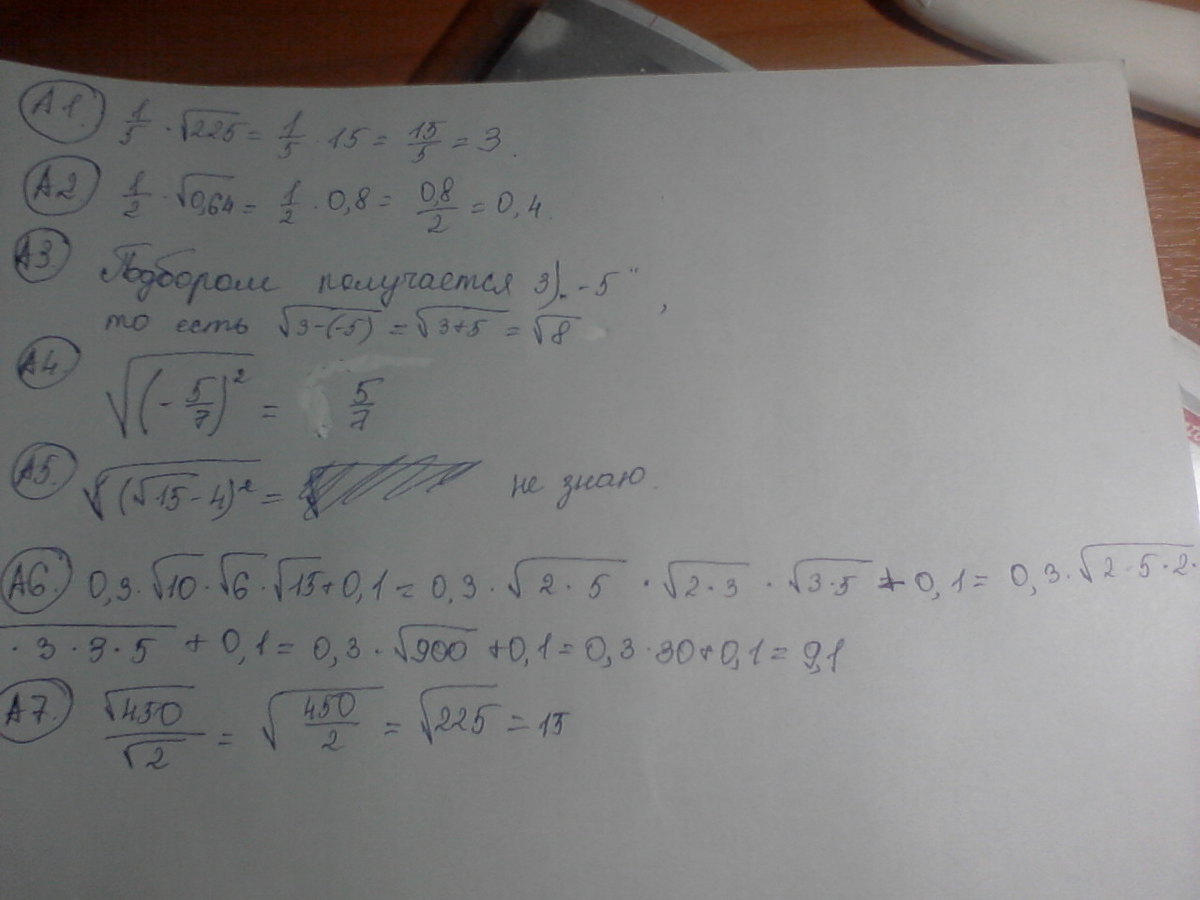 А1. 1/5 · √225 = 1/5 · 15 = 15/5 = 3.
А2. 1/2 · √0,64 = 1/2 · 0,8 = 0,8/2 = 0,4.
А3. Подбором получается 3). -5",
то есть √3-(-5) = √3+5 = √8
А4. √(-5/7)² = 5/7
А5. √(√15-4)² = не знаю.
А6. 0,3·√10·√6·√15+0,1 = 0,3·√2·5 · √2·3 · √3·5 + 0,1 = 0,3·√2·5·2·
·3·3·5 + 0,1 = 0,3·√900 + 0,1 = 0,3·30+0,1 = 9,1
А7. √450/√2 = √450/2 = √225 = 15